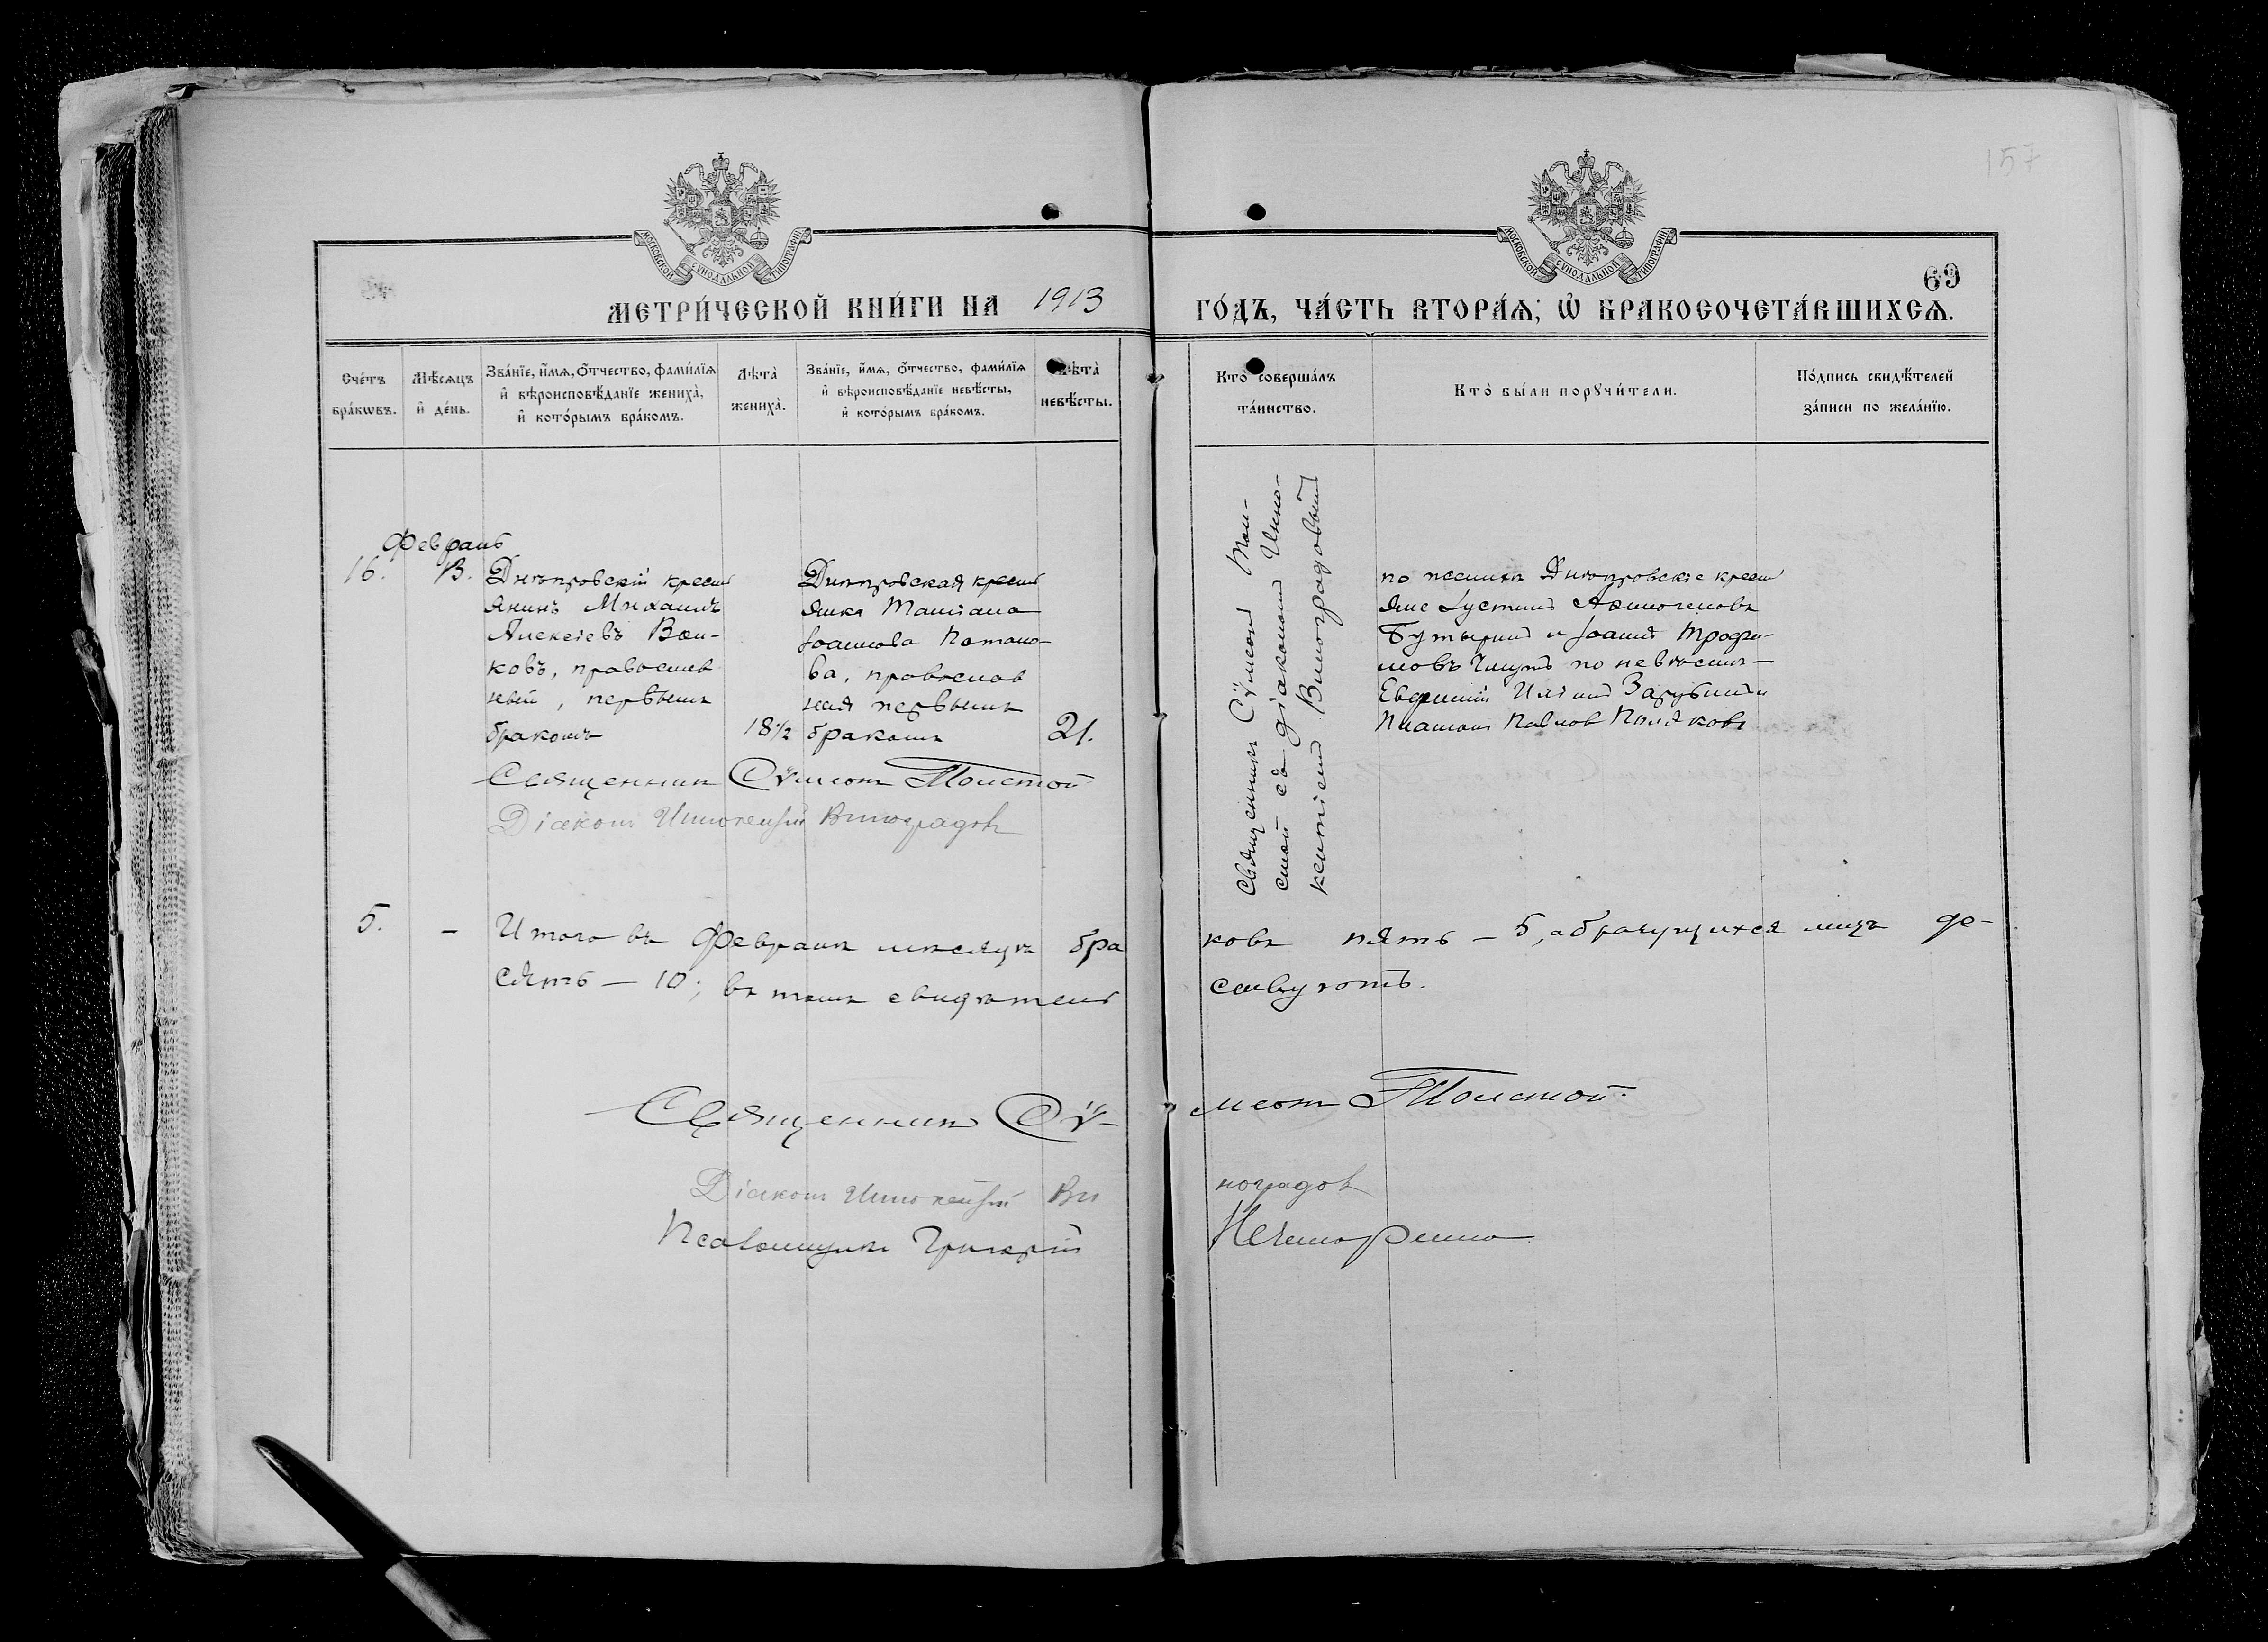 157
МОСКОВСКОЙ СѴНОДАЛЬНОЙ ТИПОГРАФІИ
МОСКОВСКОЙ СѴНОДАЛЬНОЙ ТИПОГРАФІИ
69
МЕТРИ́ЧЕСКОЙ КНИ́ГИ НА 1913 ГО́ДЪ, ЧА́СТЬ ВТОРА́Ѧ, Ѡ҆ БРАКОСОЧЕТА́ВШИХСѦ.
Сче́тъ бра́кѡвъ.
Мѣ́сѧцъ и҆ де́нь.
Зва́нїе, и҆́мѧ, ѻ҆́тчество, фами́лїѧ
и҆ вѣроисповѣ́данїе жениха̀,
и҆ кото́рымъ бра́комъ.
Лѣ́та̀ жениха̀.
Зва́нїе, и҆́мѧ, ѻ҆́тчество, фами́лїѧ
и҆ вѣроисповѣ́данїе невѣ́сты,
и҆ кото́рымъ бра́комъ.
Лѣ́та̀ невѣ́сты.
Кто̀ соверша́лъ та́инство.
Кто̀ бы́ли порꙋчи́тели.
По́дпись свидѣ́телей
за́писи по жела́нїю.
Февраль
16. 13.
Днѣпровскій крестья
янинъ Михаилъ
Алексіевъ Вол-
ковъ, православ
ный, первымъ
бракомъ
18½
Днѣпровская крестья
янка Татіана
Іоаннова Потапо-
ва, православ
ная первымъ
бракомъ
21.
Священникъ Сѵмеонъ Тол-
стой съ діакономъ Инно-
кентіемъ Виноградовымъ
по женихѣ Днѣпровскіе кресть
яне Іустинъ Аѳиногеновъ
Бутыринъ и Іоаннъ Трофи-
мовъ по невѣстѣ—
Евфимій Ильинъ Зарубинъ и
Платонъ Павловъ Поляковъ
Священникъ Сѵмеонъ Толстой
Діаконъ Иннокентій Виноградовъ
5. – Итого въ Февралѣ мѣсяцѣ браковъ пять – 5, а брачущихся лицъ де-
сять – 10; въ томъ свидѣтельствуютъ.
Священникъ Сѵмеонъ Толстой.
Діаконъ Иннокентій Виноградовъ
Псаломщикъ Григорій